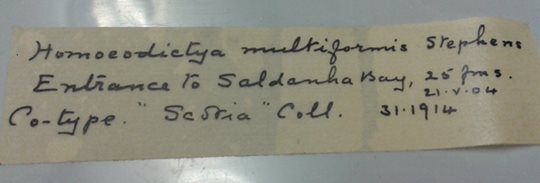 Homoeodictya multiformis Stephens
Entrance to Saldanha Bay, 25 fms.
21.V.04
Co-type. "Scotia" Coll. 31.1914